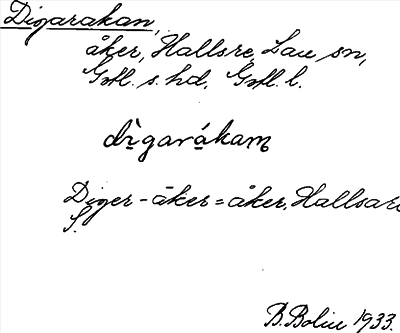 Digarakan,
åker, Hallsre, Lau sn,
Gotl. s. hd, Gotl. l.
dìgarákaṃ
Diger-åker = åker, Hallsare
S.
B. Bolin 1933.